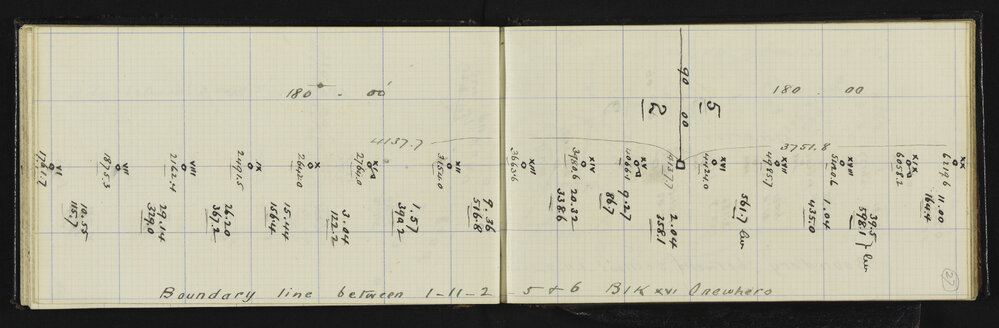 180° - 00'
180 . 00
90 00
5
2
4137.7
3751.8
VI
VII
VIII
IX
X
XI
XII
XIII
XIV
XV
XVI
XVII
XVIII
XIX
XX
1761.7
1875.3
2162.4
2491.5
2642.0
2764.0
3154.0
3663.6
3980.6
4066.9
4137.7
4424.0
4985.7
5420.6
6058.2
6719.6
10.55
115.7
29.14
329.0
26.20
367.2
15.44
156.4
3.04
122.2
1.57
399.2
9.36
516.8
20.32
338.6
9.27
86.7
2.04
358.1
561.7
1.04
435.0
39.5
598.1
11.00
164.4
27
Boundary line between 1-11-2 - 5 & 6 Blk XVI Onewhero